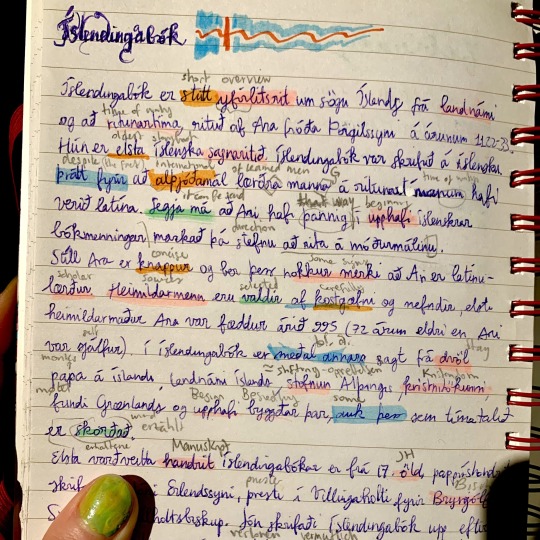 Íslendingabók
short overview
Íslendingabók er stutt yfirlitsrit um sögu Íslands frá landnámi
time of
og að ritunartíma rituð af Ara fróða Þorgilssyni á árunum 1122-33.
oldest
Hún er elsta íslenska sagnaritið. Íslendingabók var skrifuð á íslensku
despite (the fact) international of learned men time of
þrátt fyrir að alþjóðamál lærðra manna á ritunart hafi
it can be said that way beginning
verið latína. Segja má að Ari hafi þannig í upphafi íslenskrar
direction
bókmenningar markað þá stefnu að rita á móðurmálinu.
concise some signs
Stíll Ara er knappur og ber þess nokkur merki að Ari er latínu-
scholar sources selected carefully
lærður. Heimildarmenn eru valdir af kostgæfni og nefndir, elsti
heimildarmaður Ara var fæddur árið 995 (72 árum eldri en Ari
self
var sjálfur). Í Íslendingabók er meðal annars sagt frá dvöl
monks
papa á Íslandi, landnám Íslands, stofnun Alþingis, kristnitökunni,
Beginn Besiedlung some
fundi Grænlands og upphafi byggðar þar, auk þess sem tímatalið
er skorðað
erhaltene Manuskript JH
Elsta varðveitta handrit Íslendingabókar er frá 17. öld
priest
Erlendssyni, presti í Villingaholti fyrir
Jón skrifaði Íslendingabók upp eftir
verloren vermutlich